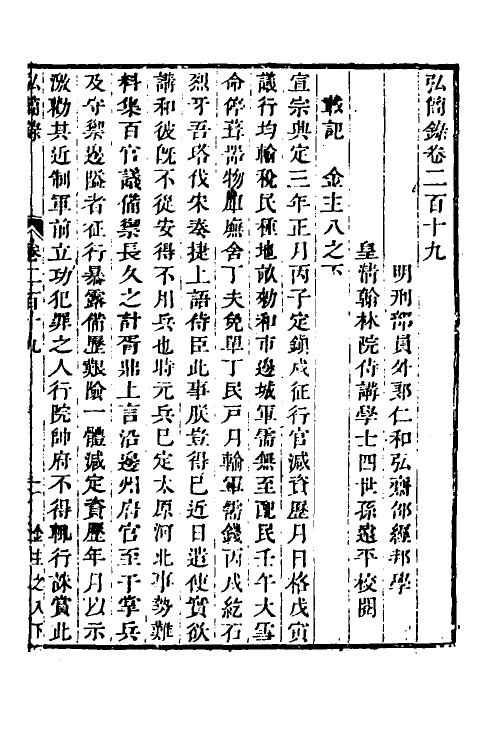 弘簡錄卷二百十九
明刑部員外郎仁和弘齋邵經邦學
皇清翰林院侍講學士四世孫遠平校閱
載記　金主八之下
宣宗興定三年正月丙子定鎮戍征行官減資歷月日格戊寅
議行均輸稅民種地畝勅和市邊城軍需無至配民壬午大雪
命停葺器物庫廡舍丁夫免單丁民戶月輸軍需錢丙戌紇石
烈牙吾塔伐宋奏捷上語侍臣此事朕豈得已近日遣使實欲
講和彼既不從安得不用兵也時元兵已定太原河北事勢難
料集百官議備禦長久之計胥鼎上言沿邊州府官至于掌兵
及守禦邊隘者征行暴露備歷艱險一體減定資歷年月以示
激勸其近制軍前立功犯罪之人行院帥府不得輒行誅賞此
弘簡錄　卷二百十九　一　金主之八下